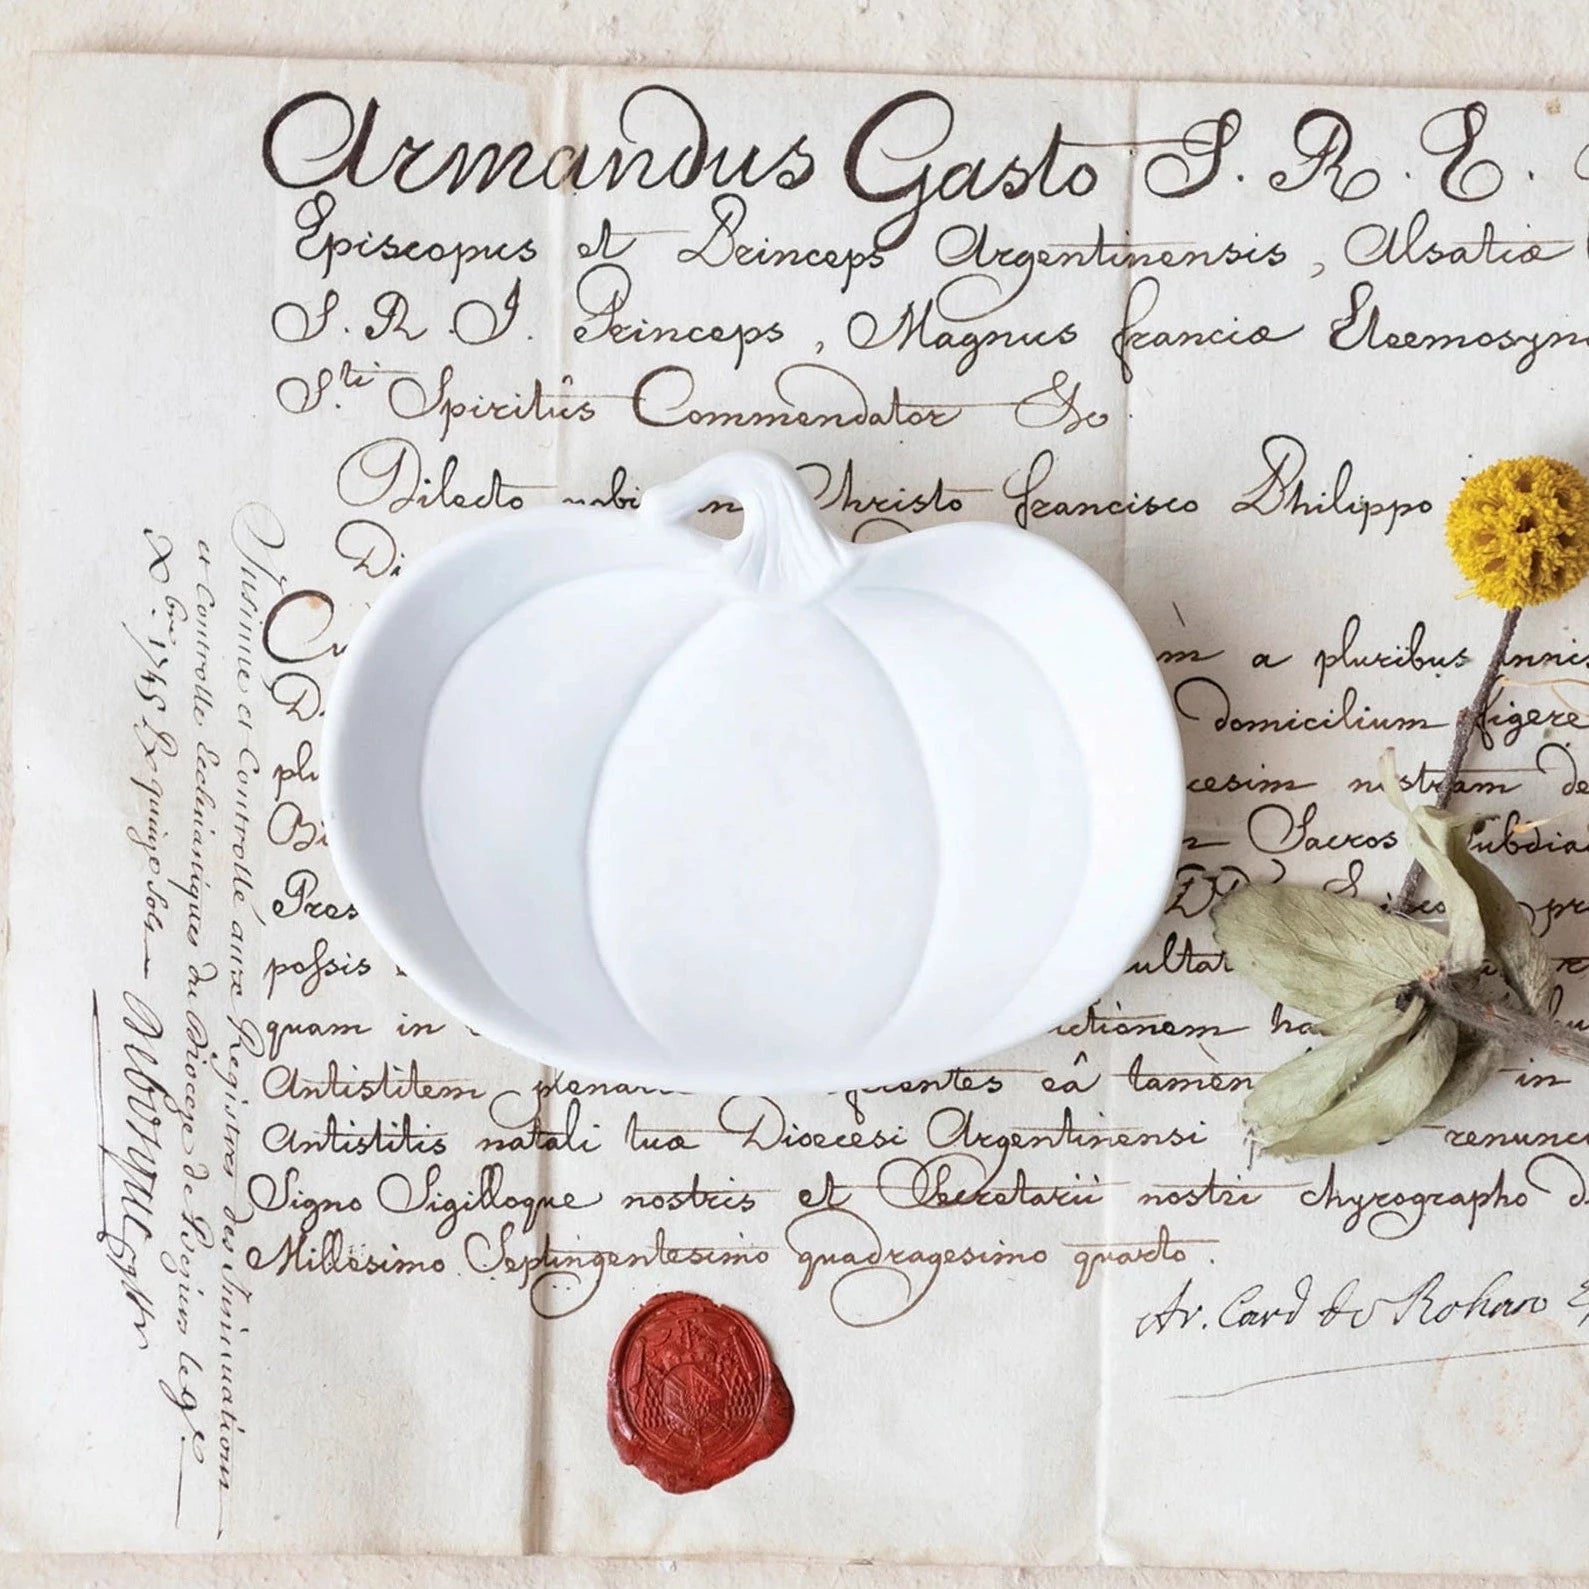 Armandus Gasto S. R. E.
Episcopus et Princeps Argentinensis, Alsatiæ
S. R. J. Princeps, Magnus franciæ Eleemosyn
S.ti Spiritûs Commendator &c.
Dilecto nobi n Christo francisco Philippo
Di
Cu m a pluribus annis
D domicilium figere
plu cesim nostram de
Bi n Sacros Subdia
Pres pr
possis ultat
quam in ictionem ha
Antistitem plenar ferentes eâ tamèn in
Antistitis natali tuæ Dioecesi Argentinensi renunc
Signo Sigilloque nostris et Secretarii nostri chyrographo d
Millesimo Septingentesimo quadragesimo quarto.
Ar. Card de Rohan
Jnsinué et Controllé aux Registres des Jnsinuations
et Controlle Ecclesiastiques du Diocese de
Xbre 1745